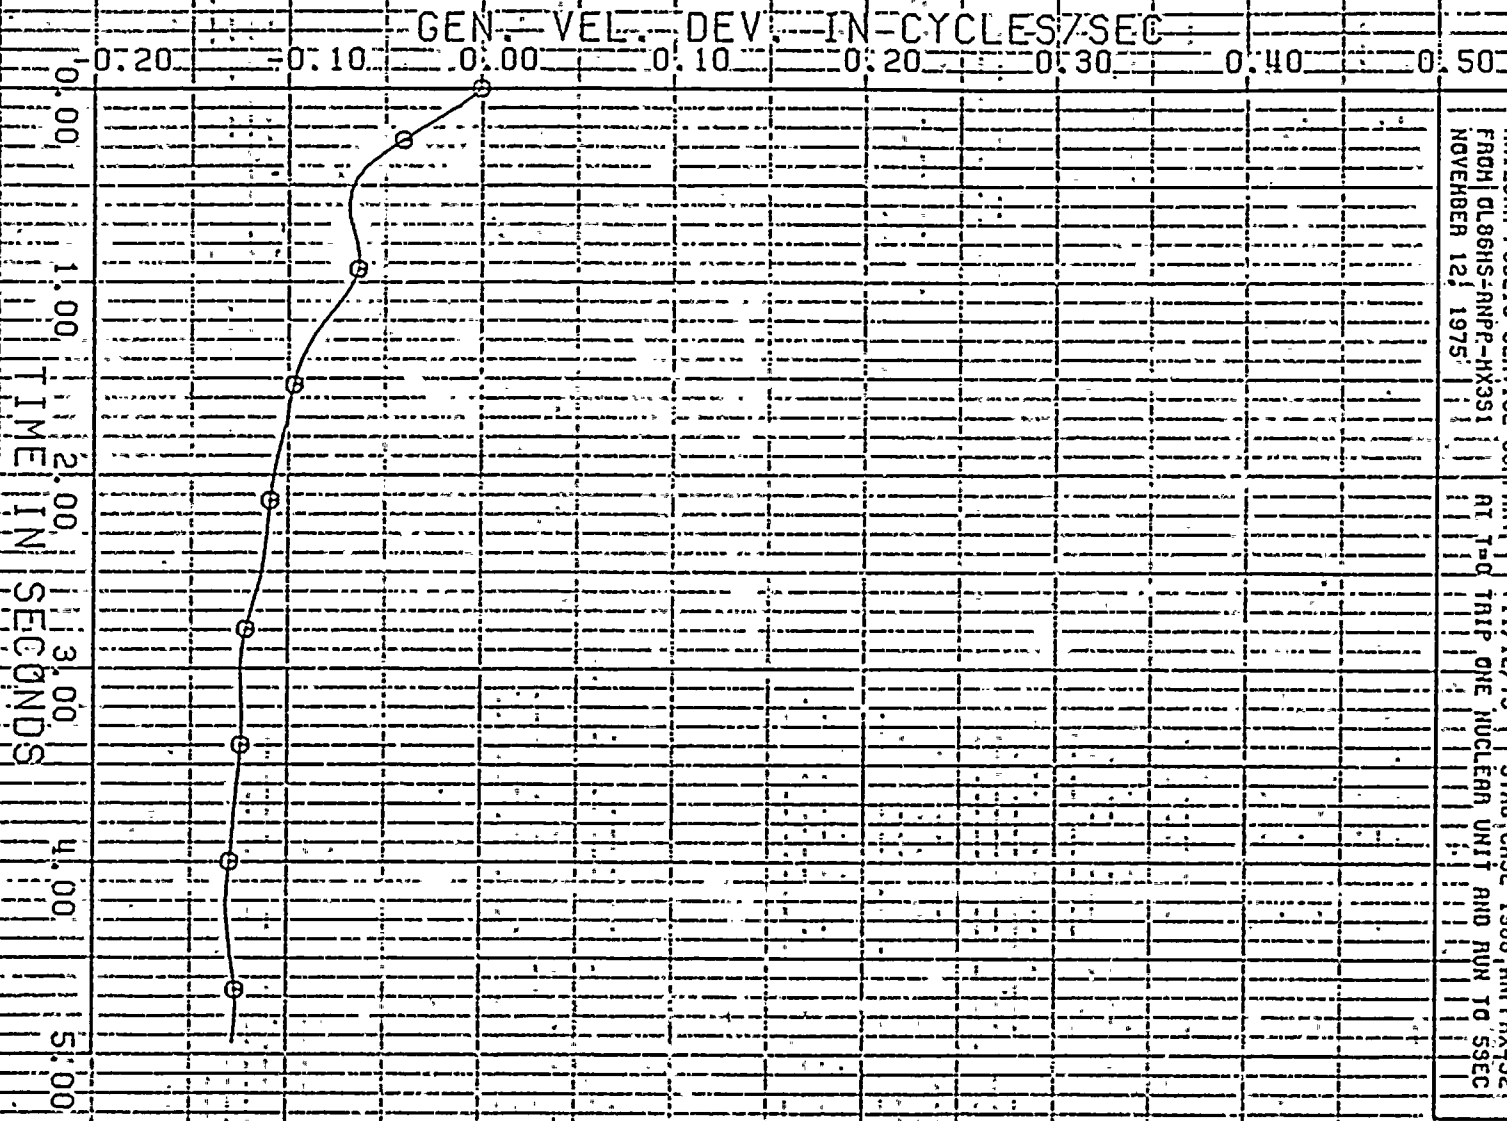 GEN. VEL. DEV. IN CYCLES/SEC
-0.20 -0.10 0.00 0.10 0.20 0.30 0.40 0.50
0.00 1.00 2.00 3.00 4.00 5.00
TIME IN SECONDS
FROM OL86HS-ANPP-HX3S1 AT T=0 TRIP ONE NUCLEAR UNIT AND RUN TO 5SEC
NOVEMBER 12, 1975